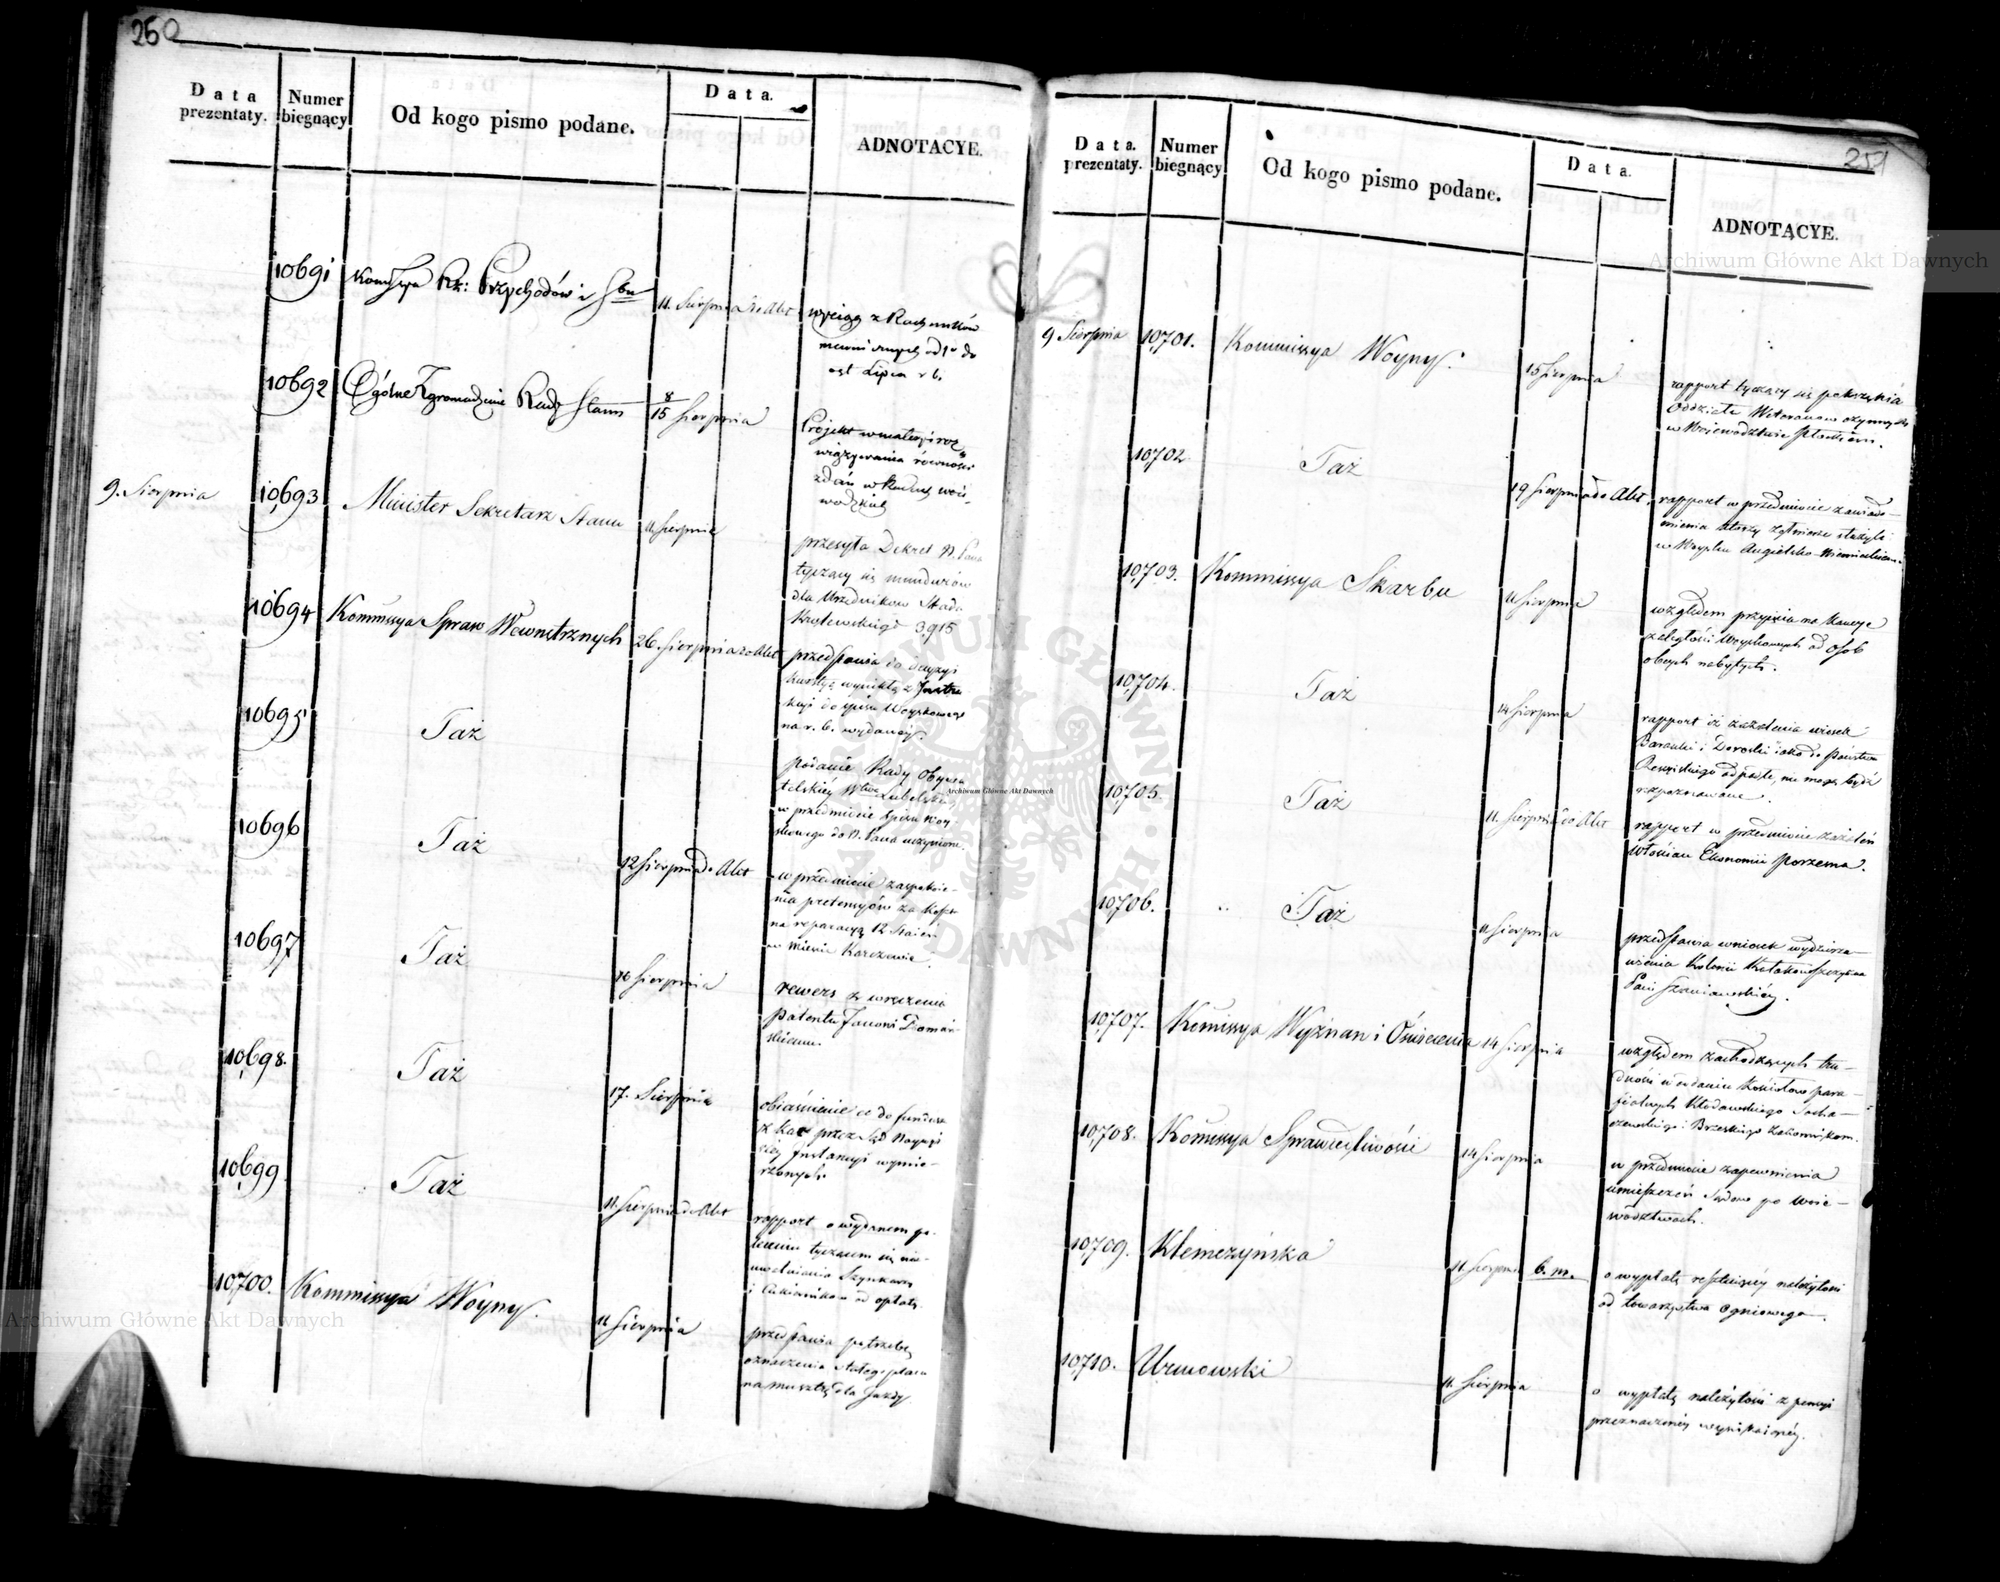 260
Data prezentaty.
Numer biegnący
Od kogo pismo podane.
Data.
ADNOTACYE.
10691 Kommissya Rz: Przychodów i Sbu 11. Sierpnia do Akt wyciąg z Rachunków
od 1o do
ost Lipca r b.
10692 Ogólne Zgromadzenie Rady Stanu 8/15 Sierpnia Projekt w materyi roz
wiązywania równości
zdań w Radach woie-
wodzkich
9. Sierpnia 10693 Minister Sekretarz Stanu 11 Sierpnia przesyła Dekret N. Pana
tyczący się mundurów
dla Urzędników Stada
3,915
10694 Kommissya Spraw Wewnętrznych 26. Sierpnia do Akt przedstawia do decyzyi
kwestyą wynikłą z Instru
kcyi do spisu Woyskowego
na r. b. wydaney.
10695 Taż podanie Rady Obywa
telskiéy Wtwa Lubelskie
w przedmiocie spisu woy-
skowego do N. Pana uczynione.
10696 Taż 12 Sierpnia do Akt w przedmiocie zaspokoie-
nia pretensyów za koszta
na reparacyą 12 Staien
w mieście Karczewie.
10697 Taż 16 Sierpnia rewers z wręczenia
patentu Janowi Doman-
skiemu.
10698. Taż 17. Sierpnia obiaśnienie co do funduszu
z kar przez Sąd
Instancyi wymie-
rzonych.
10699 Taż 11. Sierpnia do Akt rapport o wydanem po-
leceniu tyczącem się nie-
uwolniania Szynkarzy
i Cukierników od opłaty.
10700. Kommissya Woyny. 11 Sierpnia przedstawia potrzebę
oznaczenia stałego placu
na musztrę dla Jazdy
259
Data. prezentaty.
Numer biegnący
Od kogo pismo podane.
Data.
ADNOTACYE.
9 Sierpnia 10701. Kommissya Woyny. 15 Sierpnia rapport tyczący się
Oddziału Weteranów
w Woiewodztwie Płockiem.
10702. Taż 19 Sierpnia do Akt. rapport w przedmiocie zawiado-
mienia którzy żołnierze służyli
w Woysku Angielsko-Niemieckiem.
10703. Kommissya Skarbu 11 Sierpnia względem przyięcia na kaucye
zaległości woyskowych od osób
obcych nabytych.
10704. Taż 14 Sierpnia rapport iż zażalenia wiosek
Baranki i Doroski iako do Państwa
Rossyiskiego odpadłe, nie mogą bydź
rozpoznawane.
10705. Taż 11. Sierpnia do Akt rapport w przedmiocie zażaleń
włościan Ekonomii Korzenia.
10706. Taż 11 Sierpnia przedstawia wniosek wydzierza-
wienia Kolonii
Pani Staniawskiéy.
10707. Kommissya Wyznan i Oświecenia 14 Sierpnia względem zachodzących tru-
dności w oddaniu kościołów para-
fialnych Kłodawskiego Socha-
czewskiego i Brzeskiego Zakonnikom.
10708. Kommissya Sprawiedliwości 14 Sierpnia w przedmiocie zapewnienia
umieszczeń Sądom po Woie-
wództwach.
10709. Klemczyńska 11 Sierpnia b. m. o wypłatę resztuiącéy należytości
od towarzystwa Ogniowego.
10710. Urmowski 11. Sierpnia o wypłatę należytości z pensyi
przeznaczoney wynikaiącéy.
Archiwum Główne Akt Dawnych
Archiwum Główne Akt Dawnych
Archiwum Główne Akt Dawnych
ARCHIWUM GŁÓWNE AKT DAWNYCH